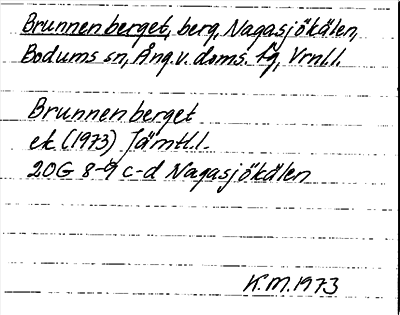 Brunnenberget, berg, Nagasjökälen,
Bodums sn, Ång. v. doms. fg, Vrnl.l.
Brunnenberget
ek (1973) Jämtl.l.
20G 8-9 c-d Nagasjökälen
K.M. 1973